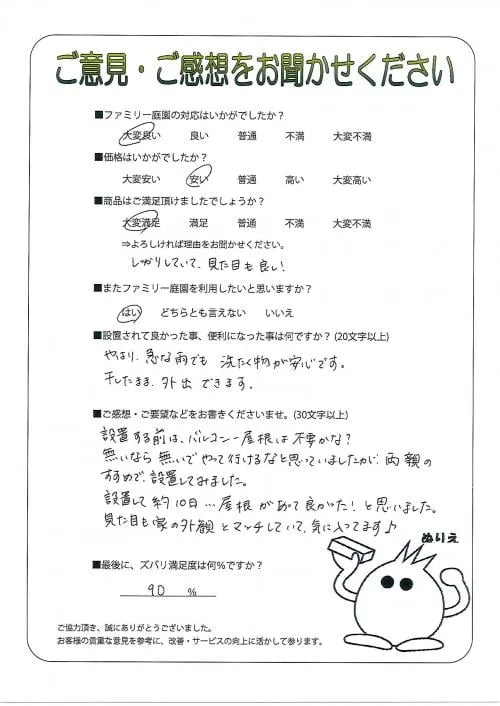 ご意見・ご感想をお聞かせください
■ファミリー庭園の対応はいかがでしたか？
大変良い 良い 普通 不満 大変不満
■価格はいかがでしたか？
大変安い 安い 普通 高い 大変高い
■商品はご満足頂けましたでしょうか？
大変満足 満足 普通 不満 大変不満
⇒よろしければ理由をお聞かせください。
しっかりしていて、見た目も良い!
■またファミリー庭園を利用したいと思いますか？
はい どちらとも言えない いいえ
■設置されて良かった事、便利になった事は何ですか？(20文字以上)
やはり、急な雨でも 洗たく物が安心です。
干したまま、外出できます。
■ご感想・ご要望などをお書きくださいませ。(30文字以上)
設置する前は、バルコニー屋根は不要かな？
無いなら無いでやって行けるなと思っていましたが、両親の
すすめで、設置してみました。
設置して約10日…屋根があって良かった！と思いました。
見た目も家の外観とマッチしていて、気に入ってます♪
ぬりえ
■最後に、ズバリ満足度は何％ですか？
90 %
ご協力頂き、誠にありがとうございました。
お客様の貴重な意見を参考に、改善・サービスの向上に活かして参ります。